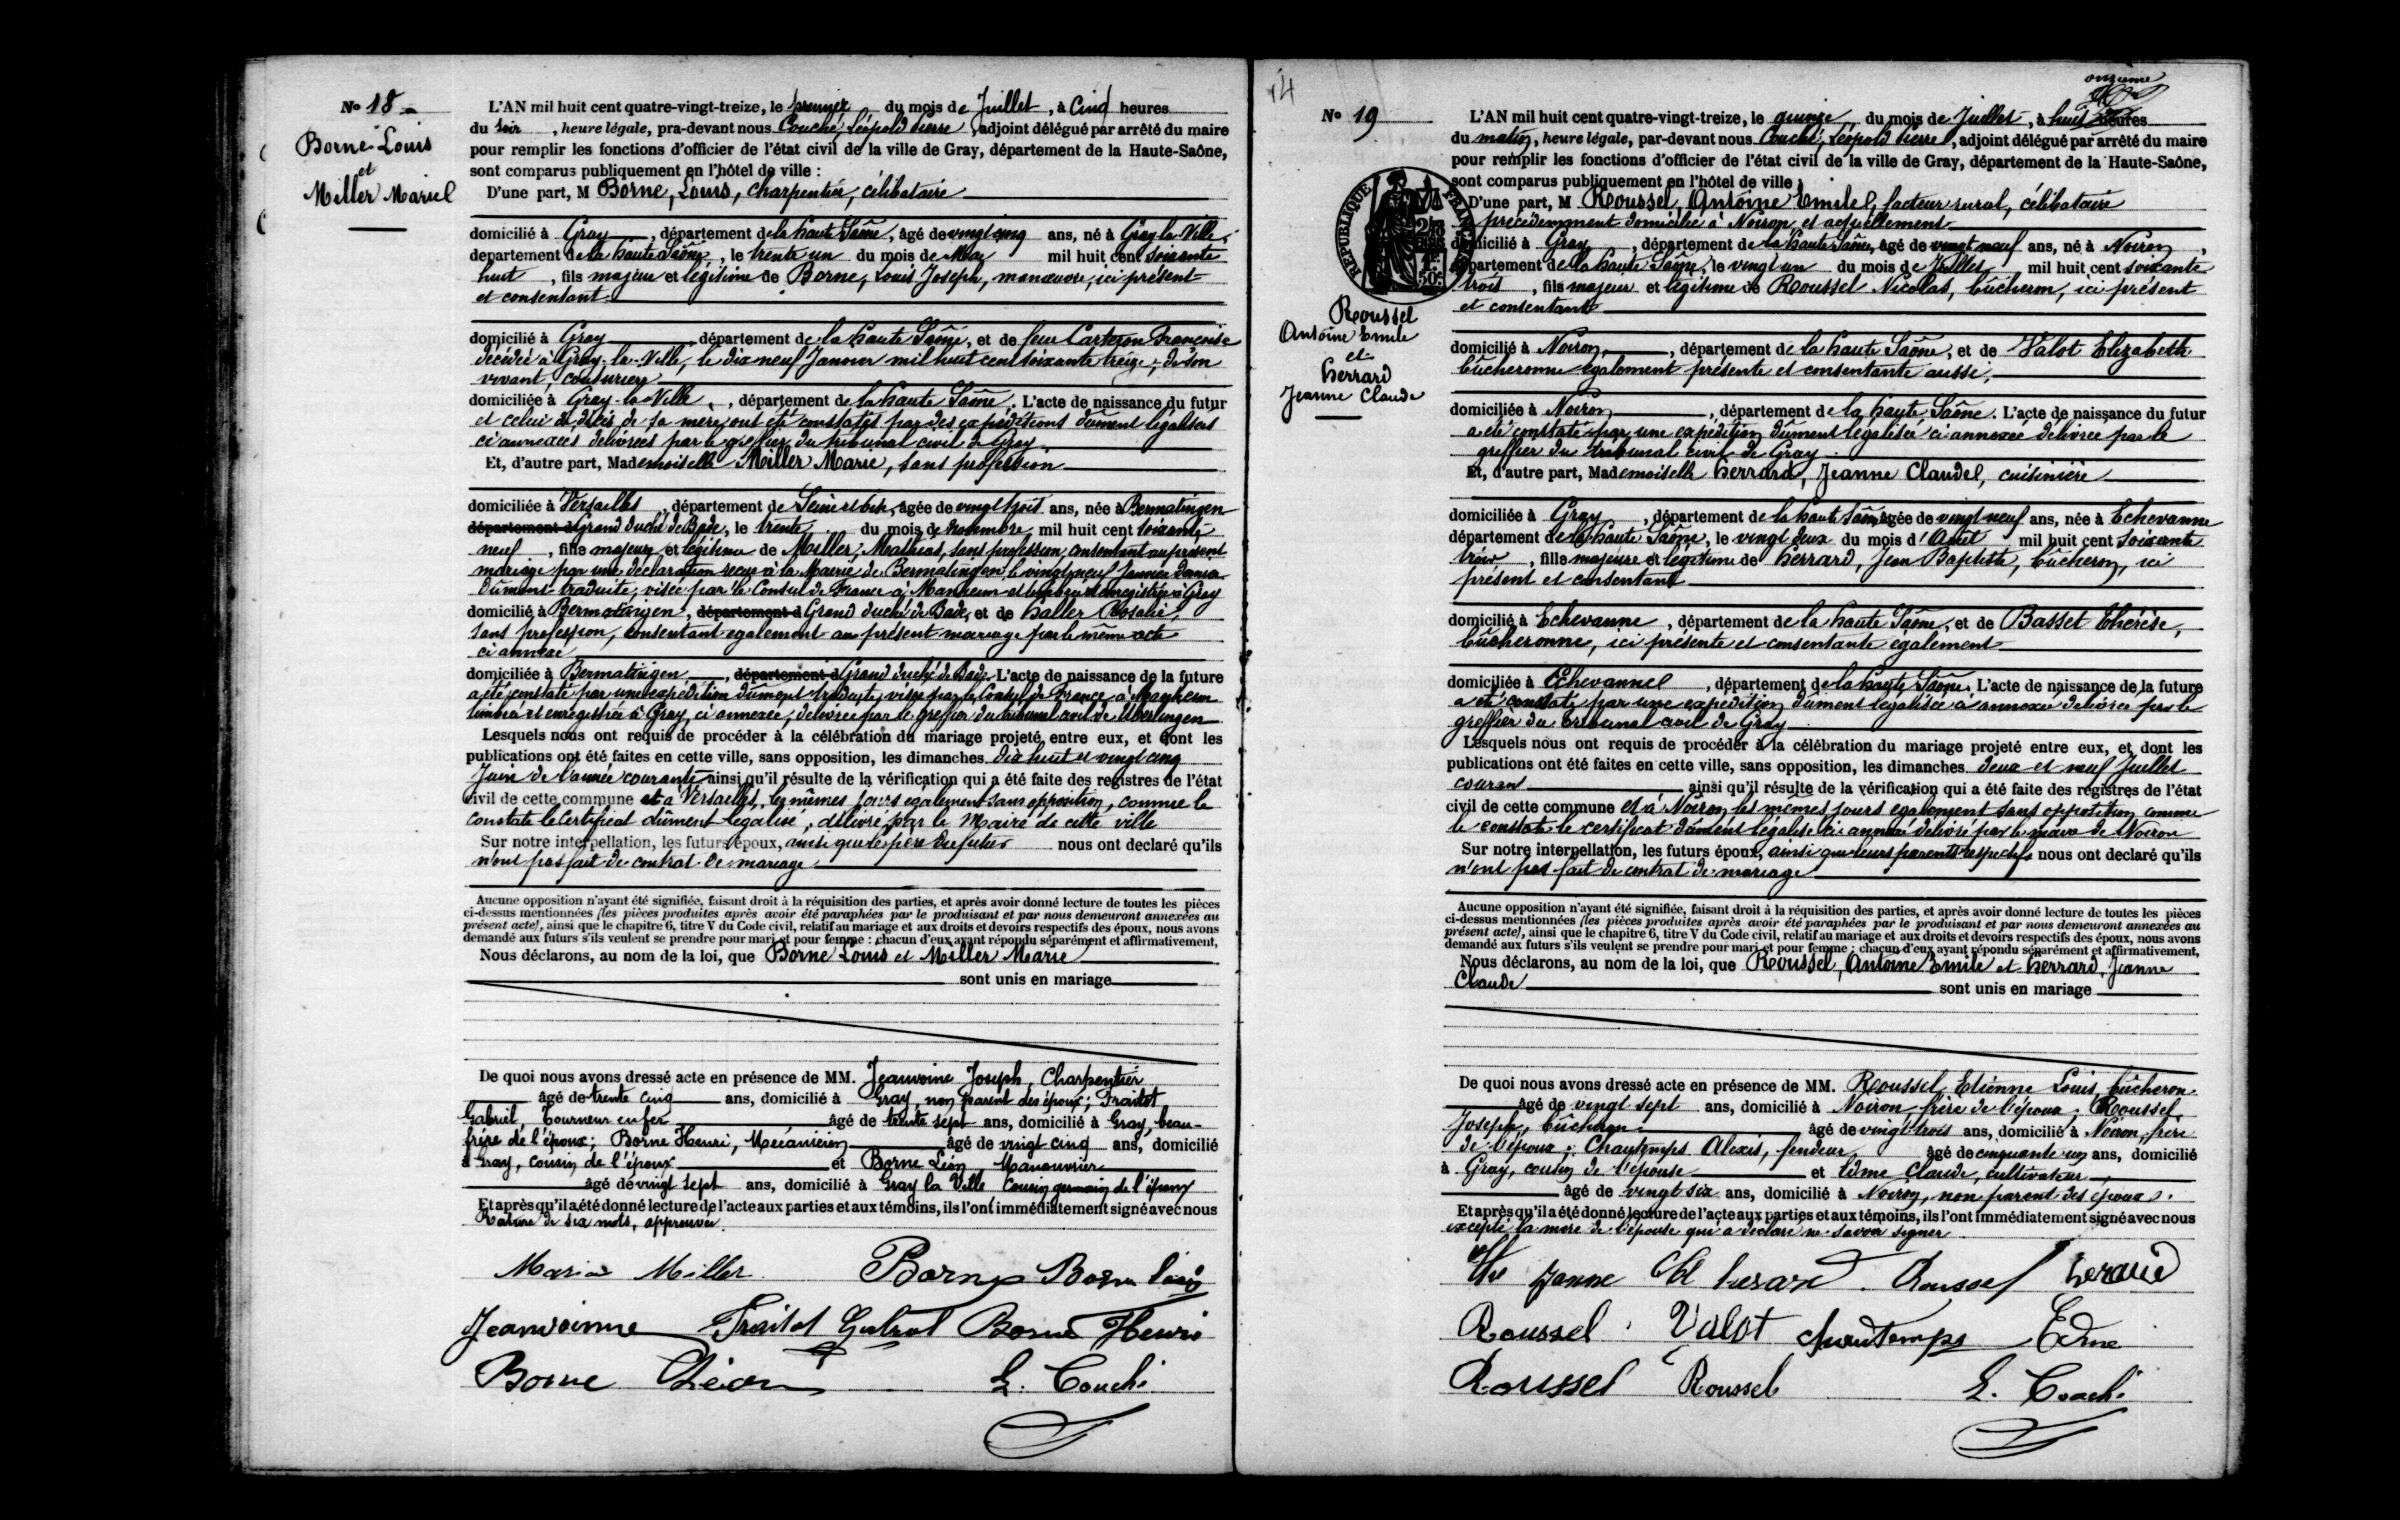 No 18
Borne Louis
et
Miller Marie
L'AN mil huit cent quatre-vingt-treize, le premier du mois de Juillet, à Cinq heures
du soir, heure légale, pra-devant nous Couché, Léopold Pierre, adjoint délégué par arrêté du maire
pour remplir les fonctions d'officier de l'état civil de la ville de Gray, département de la Haute-Saône,
sont comparus publiquement en l'hôtel de ville :
D'une part, M Borne, Louis, charpentier, célibataire
domicilié à Gray, département de la haute Saône, âgé de vingt cinq ans, né à Gray-la-Ville,
departement de la haute Saône, le trente un du mois de Mai mil huit cent soixante
huit, fils majeur et légitime de Borne, Louis Joseph, manœuvre, ici présent
et consentant
domicilié à Gray département de la haute Saône, et de feue Carteron Françoise
décédée à Gray-la-Ville, le dix neuf Janvier mil huit cent soixante treize, de son
vivant, couturière
domiciliée à Gray-la-Ville, département de la haute Saône. L'acte de naissance du futur
et celui de décès de sa mère, ont été constatés par des expéditions dûment légalisées
ci annexées délivrées par le greffier du tribunal civil de Gray
Et, d'autre part, Mademoiselle Miller Marie, sans profession
domiciliée à Versailles, département de Seine et Oise, âgée de vingt trois ans, née à Bermatingen
département d Grand duché de Bade, le trente du mois de novembre mil huit cent soixante
neuf, fille majeure et légitime de Miller, Mathias, sans profession, consentant au présent
mariage par une déclaration reçue à la Mairie de Bermatingen, le vingt neuf Janvier
dûment traduite, visée par le Consul de France à Manheim et enregistrée à Gray
domicilié à Bermatingen, département d Grand duché de Bade, et de Haller Rosalie,
sans profession, consentant egalement au présent mariage par le même acte
ci annexé
domiciliée à Bermatingen, département d Grand duché de Bade. L'acte de naissance de la future
a été constaté par une expédition dûment traduite, visée par le Consul de France à Manheim
timbrée et enregistrée à Gray, ci annexée, délivrée par le greffier du tribunal civil de Uberlingen
Lesquels nous ont requis de procéder à la célébration du mariage projeté entre eux, et dont les
publications ont été faites en cette ville, sans opposition, les dimanches dix huit et vingt cinq
Juin de l'année courante ainsi qu'il résulte de la vérification qui a été faite des registres de l'état
civil de cette commune et à Versailles, les mêmes jours egalement sans opposition, comme le
constate le certificat dûment legalisé, délivré par le Maire de cette ville
Sur notre interpellation, les futurs époux, ainsi que le père du futur nous ont declaré qu'ils
n'ont pas fait de contrat de mariage
Aucune opposition n'ayant été signifiée, faisant droit à la réquisition des parties, et après avoir donné lecture de toutes les pièces
ci-dessus mentionnées (les pièces produites après avoir été paraphées par le produisant et par nous demeuront annexées au
présent acte), ainsi que le chapitre 6, titre V du Code civil, relatif au mariage et aux droits et devoirs respectifs des époux, nous avons
demandé aux futurs s'ils veulent se prendre pour mari et pour femme : chacun d'eux ayant répondu séparément et affirmativement,
Nous déclarons, au nom de la loi, que Borne Louis et Miller Marie
sont unis en mariage
De quoi nous avons dressé acte en présence de MM. Jeanvoine Joseph, Charpentier
âgé de trente cinq ans, domicilié à Gray, non parent des époux; Fraitot
Gabriel, Tourneur en fer âgé de trente sept ans, domicilié à Gray, beau-
frère de l'époux; Borne Henri, Mécanicien âgé de vingt cinq ans, domicilié
à Gray, cousin de l'époux et Borne Léon, Manouvrier
âgé de vingt sept ans, domicilié à Gray la Ville Cousin germain de l'époux
Et après qu'il a été donné lecture de l'acte aux parties et aux témoins, ils l'ont immédiatement signé avec nous
Rature de six mots, approuvée.
Maria Miller Borne Borne Louis
Jeanvoinne Fraitot Gabriel Borne Henri
Borne Léon L. Couché
14
No 19
Roussel
Antoine Emile
et
herrard
Jeanne Claude
onzième
L'AN mil huit cent quatre-vingt-treize, le quinze du mois de Juillet, à huit heures
du matin, heure légale, par-devant nous Couché, Léopold Pierre, adjoint délégué par arrêté du maire
pour remplir les fonctions d'officier de l'état civil de la ville de Gray, département de la Haute-Saône,
sont comparus publiquement en l'hôtel de ville :
D'une part, M Roussel, Antoine Emile, facteur rural, célibataire
précédemment domicilié à Noiron, et actuellement
domicilié à Gray, département de la haute Saône, âgé de vingt neuf ans, né à Noiron,
département de la haute Saône, le vingt un du mois de Juillet mil huit cent soixante
trois, fils majeur et légitime de Roussel Nicolas, bûcheron, ici présent
et consentant
domicilié à Noiron, département de la haute Saône, et de Valot Elizabeth
bûcheronne également présente et consentante aussi,
domiciliée à Noiron, département de la haute Saône. L'acte de naissance du futur
a été constaté par une expédition dûment légalisée ci annexée délivrée par le
greffier du tribunal civil de Gray
Et, d'autre part, Mademoiselle herrard, Jeanne Claude, cuisinière
domiciliée à Gray, département de la haute Saône, âgée de vingt neuf ans, née à Echevanne
département de la haute Saône, le vingt deux du mois d'Août mil huit cent soixante
trois, fille majeure et légitime de herrard, Jean Baptiste, bûcheron, ici
présent et consentant
domicilié à Echevanne, département de la haute Saône, et de Basset Thérèse,
bûcheronne, ici présente et consentante également
domiciliée à Echevanne, département de la haute Saône. L'acte de naissance de la future
a été constaté par une expédition dûment légalisée ci annexée délivrée par le
greffier du tribunal civil de Gray
Lesquels nous ont requis de procéder à la célébration du mariage projeté entre eux, et dont les
publications ont été faites en cette ville, sans opposition, les dimanches deux et neuf Juillet
courant ainsi qu'il résulte de la vérification qui a été faite des registres de l'état
civil de cette commune et à Noiron les mêmes jours egalement sans opposition comme
le constate le certificat dûment légalisé ci annexé délivré par le maire de Noiron
Sur notre interpellation, les futurs époux, ainsi que leurs parents respectifs nous ont declaré qu'ils
n'ont pas fait de contrat de mariage
Aucune opposition n'ayant été signifiée, faisant droit à la réquisition des parties, et après avoir donné lecture de toutes les pièces
ci-dessus mentionnées (les pièces produites après avoir été paraphées par le produisant et par nous demeuront annexées au
présent acte), ainsi que le chapitre 6, titre V du Code civil, relatif au mariage et aux droits et devoirs respectifs des époux, nous avons
demandé aux futurs s'ils veulent se prendre pour mari et pour femme : chacun d'eux ayant répondu séparément et affirmativement,
Nous déclarons, au nom de la loi, que Roussel, Antoine Emile et herrard, Jeanne
Claude sont unis en mariage
De quoi nous avons dressé acte en présence de MM. Roussel, Etienne Louis, bûcheron
âgé de vingt sept ans, domicilié à Noiron frère de l'époux; Roussel
Joseph, bûcheron âgé de vingt trois ans, domicilié à Noiron, frère
de l'époux; Chautemps Alexis, fendeur, âgé de cinquante un ans, domicilié
à Gray, cousin de l'épouse et Edme Claude, cultivateur
âgé de vingt six ans, domicilié à Noiron, non parent des époux.
Et après qu'il a été donné lecture de l'acte aux parties et aux témoins, ils l'ont immédiatement signé avec nous
excepté la mère de l'épouse qui a déclaré ne savoir signer
Jeanne Cl herard Roussel heraud
Roussel Valot chautemps Edme
Roussel Roussel L. Couché